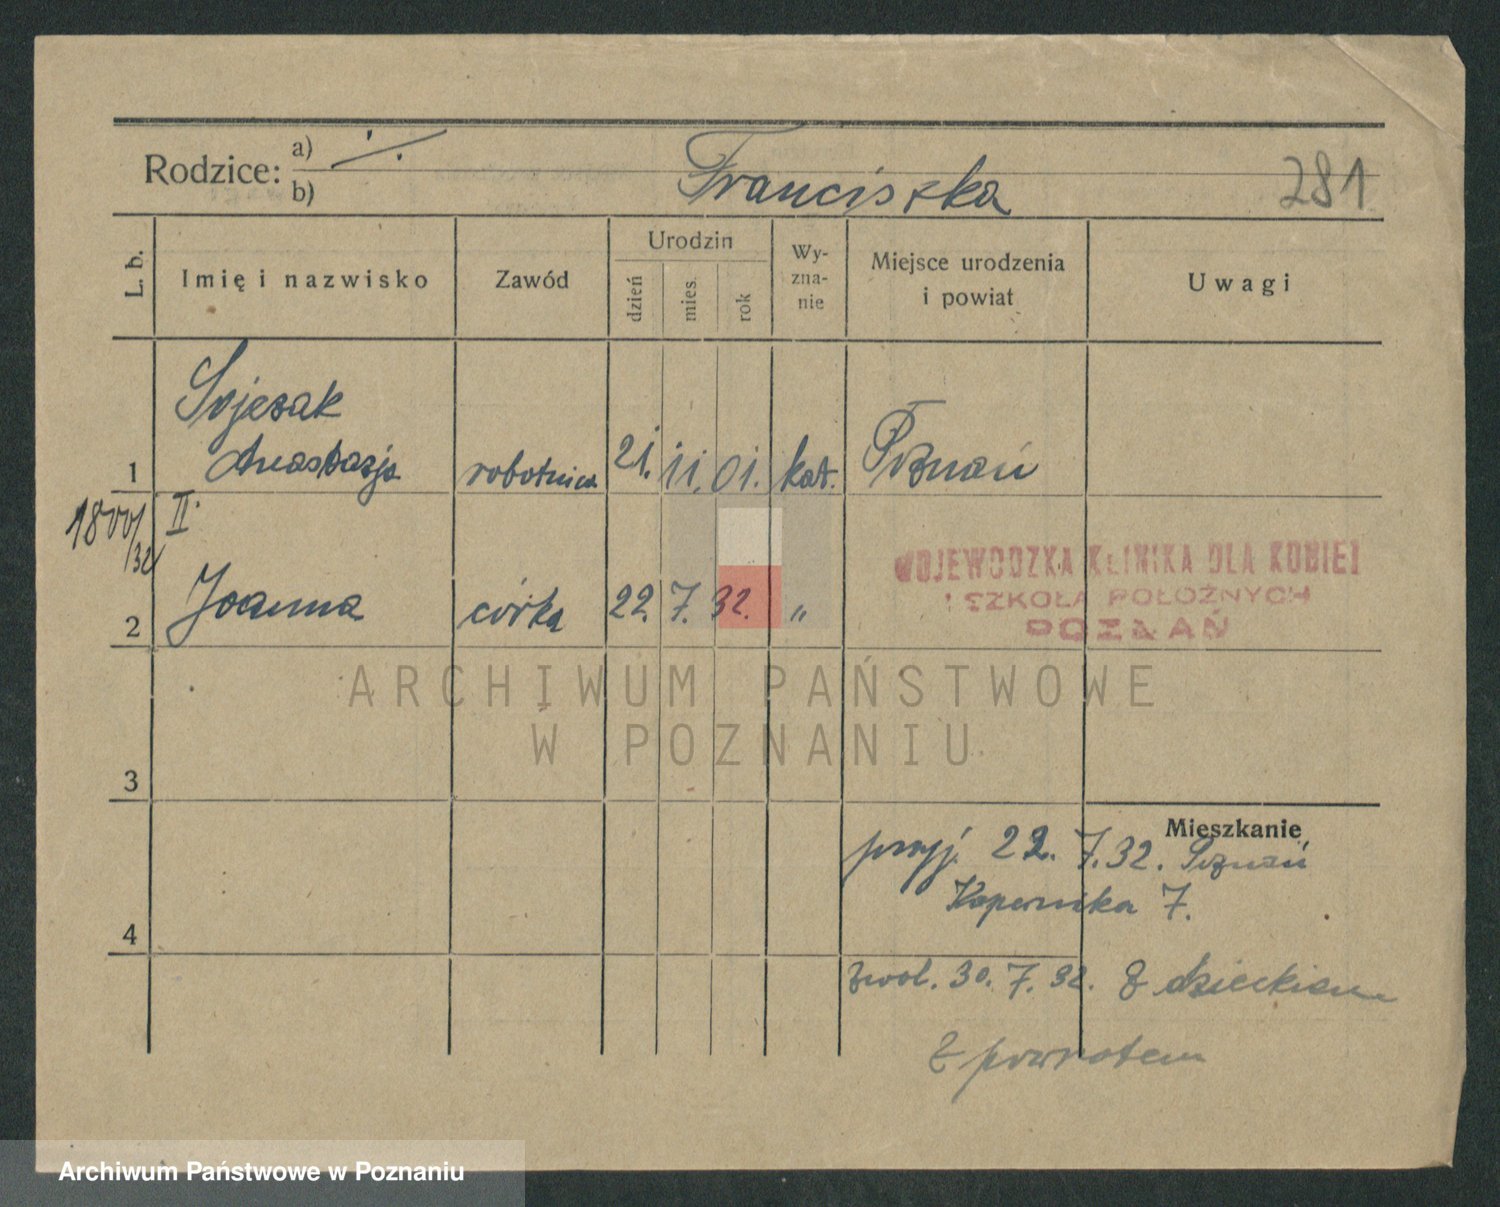 Rodzice: a) ·/.
b)
Franciszka
281
L. b.
Imię i nazwisko
Zawód
Urodzin
dzień
mies.
rok
Wy-
zna-
nie
Miejsce urodzenia
i powiat
Uwagi
1
Anastazja
robotnica
21.
11.
01.
kat.
Poznań
II.
/32
2
Joanna
córka
22.
7.
32.
"
WOJEWODZKA KLINIKA DLA KOBIET
I SZKOŁA POŁOŻNYCH
POZNAŃ
ARCHIWUM PAŃSTWOWE
W POZNANIU
3
Mieszkanie
przyj. 22. 7. 32. Poznań
Kopernika 7.
4
zwol. 30. 7. 32. z dzieckiem
z powrotem
Archiwum Państwowe w Poznaniu